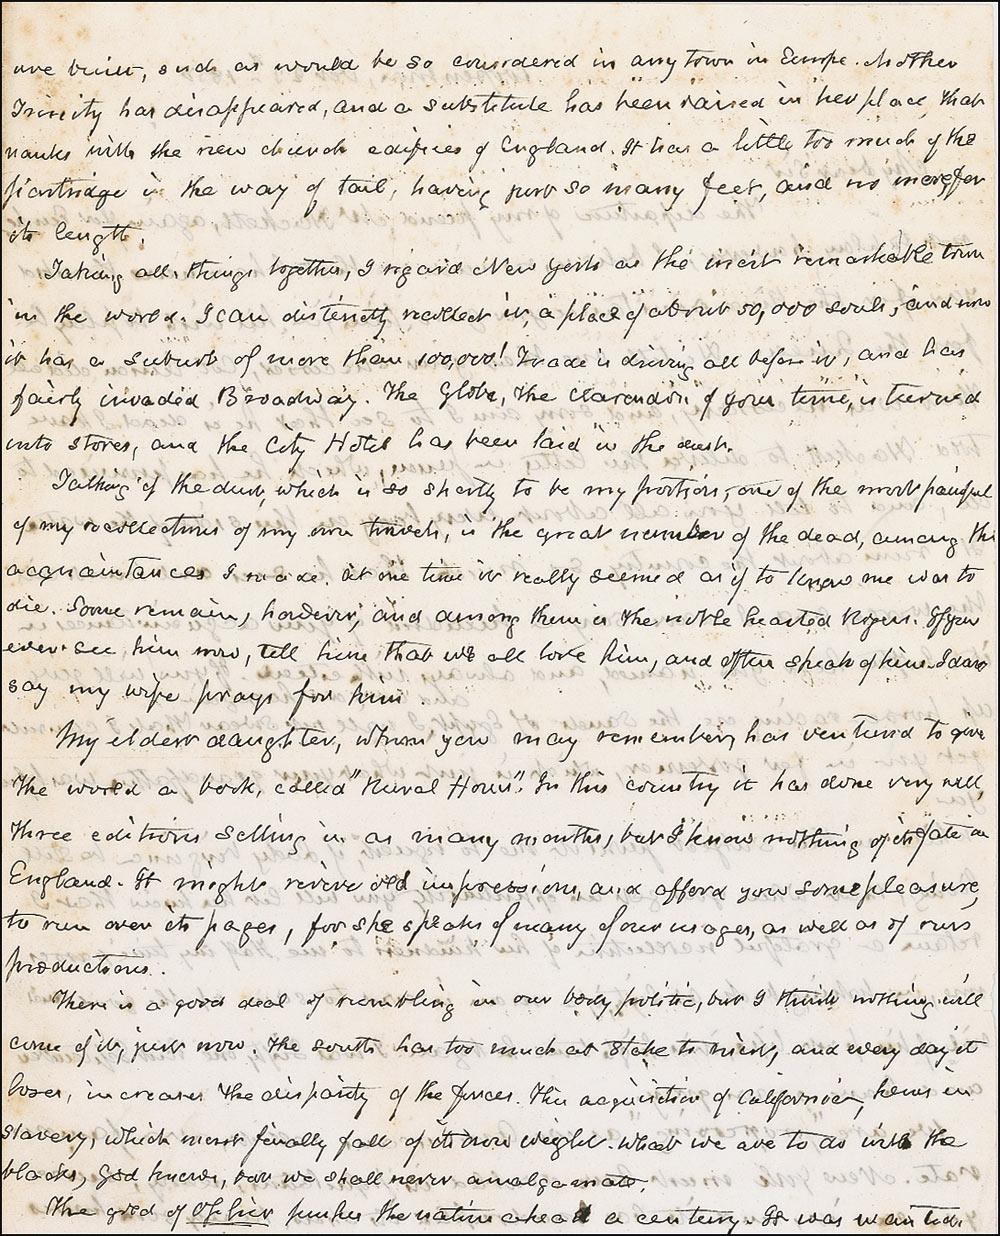 are built, such as would be so considered in any town in Europe. Mother
Trinity has disappeared, and a substitute has been raised in her place, that
ranks with the new church edifices of England. It has a little too much of the
partridge in the way of tail, having just so many feet, and no more, for
its length.
Taking all things together, I regard New York as the most remarkable town
in the world. I can distinctly recollect it, a place of about 50,000 souls, and now
it has a suburb of more than 100,000! Trade is driving all before it, and has
fairly invaded Broadway. The Globe, the Clarendon of your time, is turned
into stores, and the City Hotel has been laid in the dust.
Talking of the dust, which is so shortly to be my portion, one of the most painful
of my recollections of my own travels, is the great number of the dead, among the
acquaintances I made. At one time it really seemed as if to know me was to
die. Some remain, however, and among them is the noble hearted Rogers. If you
ever see him now, tell him that we all love him, and often speak of him. I dare
say my wife prays for him
My eldest daughter, whom you may remember, has ventured to give
the world a book, called "Rural Hours". In this country it has done very well,
three editions selling in as many months, but I know nothing of its fate in
England. It might revive old impressions, and afford you some pleasure,
to run over its pages, for she speaks of many of our usages, as well as of
productions.
There is a good deal of rumbling in our body politic, but I think nothing will
come of it, just now. The south has too much at stake to risk, and every day it
loses, increases the disparity of the forces. This acquisition of California, hems in
slavery, which must finally fall of its own weight. What we are to do with the
blacks, God knows, but we shall never amalgamate.
The gold of Ophir pushes the nation ahead a century. It was wanted